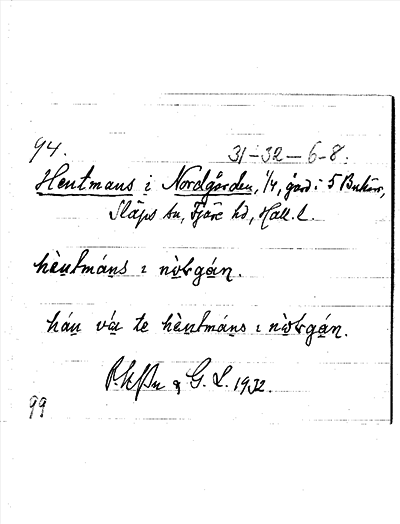 94.
31-32-6-8.
Hentmans i Nordgården, 1/4, gård i 5 Bukärr,
Släps sn, Fjäre hd, Hall. l.
hèntmáns ı nòrgán.
hán vía te hèntmáns ı nòrgán.
& G. L. 1932.
99